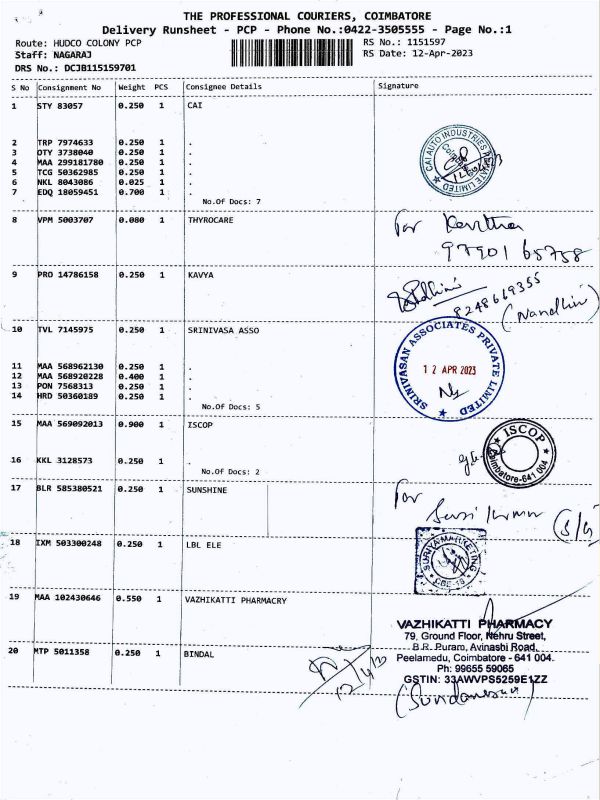 THE PROFESSIONAL COURIERS, COIMBATORE
Delivery Runsheet - PCP - Phone No.:0422-3505555 - Page No.:1
Route: HUDCO COLONY PCP RS No.: 1151597
Staff: NAGARAJ RS Date: 12-Apr-2023
DRS No.: DCJB115159701
S No Consignment No Weight PCS Consignee Details Signature
1 STY 83057 0.250 1 CAI
2 TRP 7974633 0.250 1 .
3 OTY 3738040 0.250 1 .
4 MAA 299181780 0.250 1 .
5 TCG 50362985 0.250 1 .
6 NKL 8043086 0.025 1 .
7 EDQ 18059451 0.700 1 .
No.Of Docs: 7
CAI AUTO INDUSTRIES PRIVATE LIMITED
8 VPM 5003707 0.080 1 THYROCARE
For Kavitha
97901 65758
9 PRO 14786158 0.250 1 KAVYA
8248669355
(Nandhini)
10 TVL 7145975 0.250 1 SRINIVASA ASSO
11 MAA 568962130 0.250 1 .
12 MAA 568920228 0.400 1 .
13 PON 7568313 0.250 1 .
14 HRD 50360189 0.250 1 .
No.Of Docs: 5
SRINIVASAN ASSOCIATES PRIVATE LIMITED
12 APR 2023
15 MAA 569092013 0.900 1 ISCOP
16 KKL 3128573 0.250 1 .
No.Of Docs: 2
ISCOP
Coimbatore-641 004
17 BLR 585380521 0.250 1 SUNSHINE
For
18 IXM 503300248 0.250 1 LBL ELE
SURIYA MARKETING
19 MAA 102430646 0.550 1 VAZHIKATTI PHARMACRY
VAZHIKATTI PHARMACY
79, Ground Floor, Nehru Street,
B.R. Puram, Avinashi Road,
Peelamedu, Coimbatore - 641 004.
Ph: 99655 59065
GSTIN: 33AWVPS5259E1ZZ
20 MTP 5011358 0.250 1 BINDAL